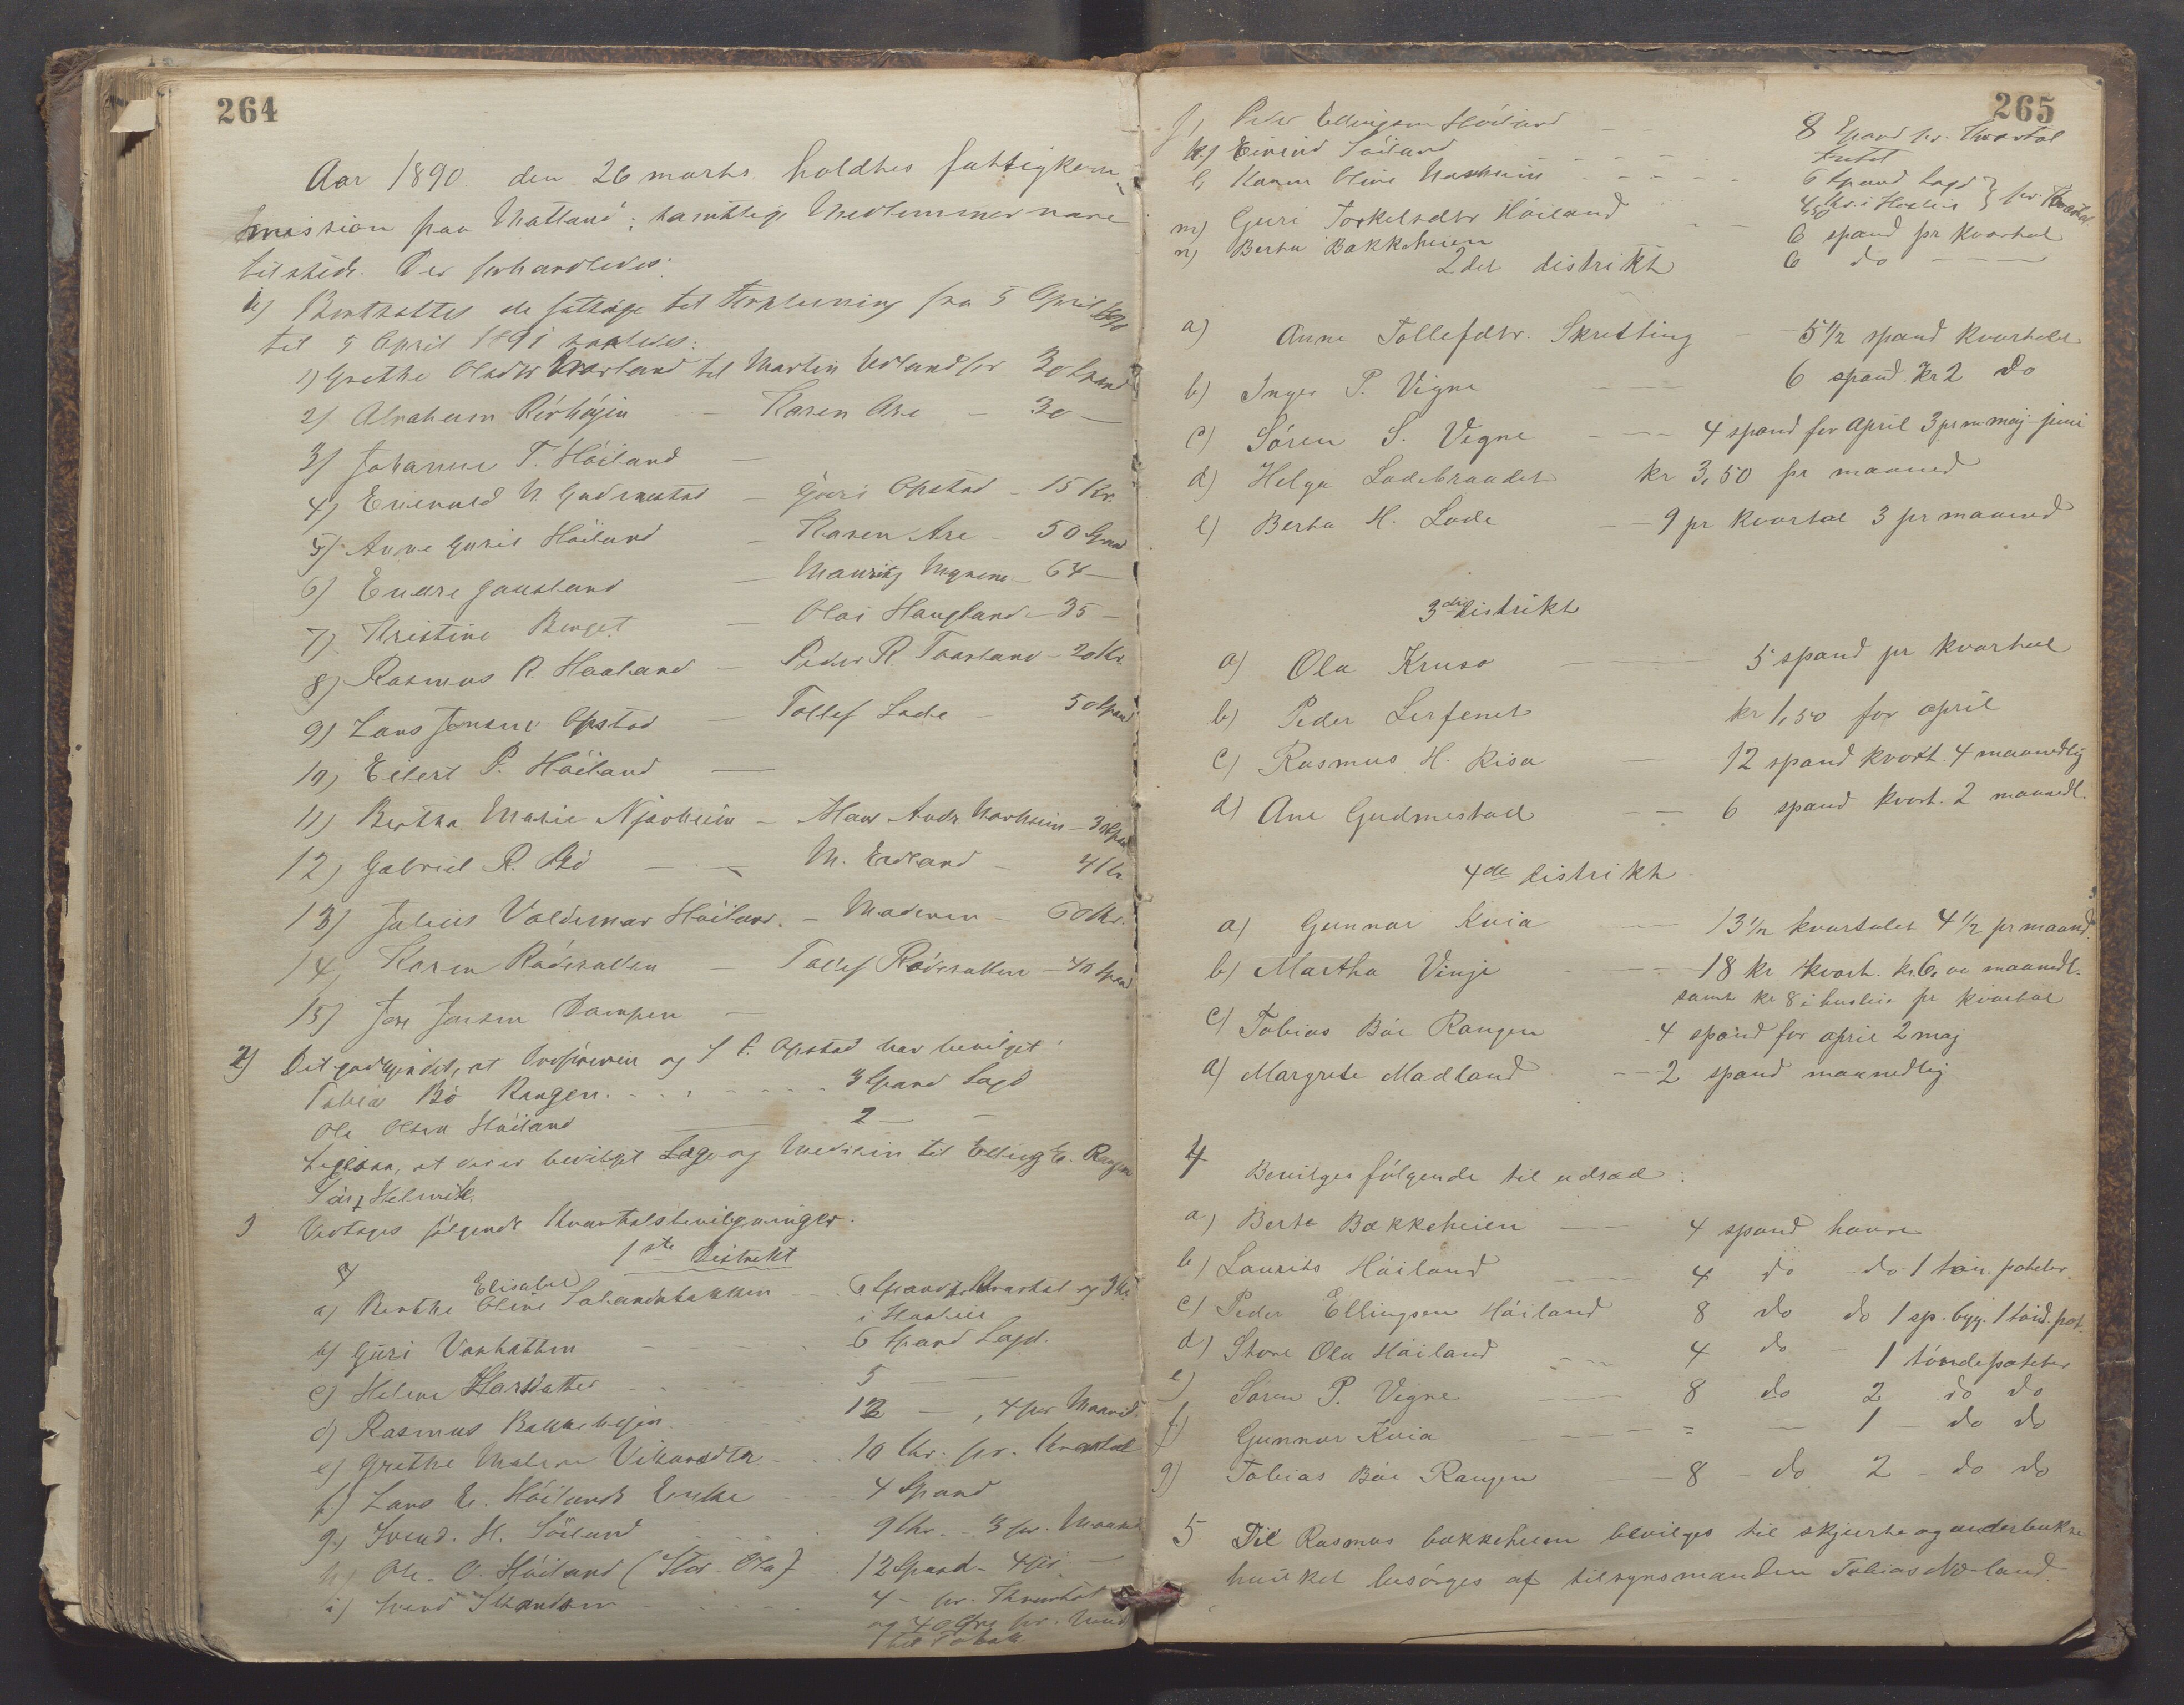 264
Aar 1890 den 26 marts holdtes fattigkom-
mission paa Natland; samtlige Medlemmer vare
tilstede. Der forhandledes:
1) Bortsattes de fattige til Forpleining fra 5 April 1890
til 5 April 1891 saaledes:
1) Grethe Olsdtr Varland til Martin Udland for 30 Spand
2) Abraham Rörhöjen - Karen Are - 30 -
3) Johanne T. Höiland -
4) Enevald N Gudmestad - Guri Opstad - 15 Kr.
5) Anne Gurie Höiland - Karen Are - 50 Spand
6) Endre Gausland - Mauritz Mgrene - 64 -
7) Kristine Berget - Olai Haugland - 35 -
8) Rasmus R. Haaland - Peder R. Taarland - 20 Kr.
9) Lars Jonsen Opstad - Tollef Lode - 50 Spand
10) Eilert P. Höiland -
11) Bertha Marie Njærheim - Hans Andr. Nærheim - 30 Spand
12) Gabriel R. Bö - - M. Erland - 41 kr
13) Julius Valdemar Höiland. - Moderen - 60 Kr.
14) Karen Rödesatten - Tollef Rödesatten - 40 Spand
15) Jon Jonsen Dampen -
2) Det godkjendtes, at Ordföreren og T P. Opstad har bevilget:
Tobias Bö Rangen. - - - - - 3 Spand Lagd
Ole Olsen Höiland 2 -
Ligesaa, at der er bevilget Læge og Medisin til Elling E. Rangen
3 Vedtages følgende Kvartalsbevilgninger.
1ste Distrikt
a) Berthe Elisabet Oline - 6 Spand pr Kvartal og 3 Kr.
i Husleie
b) Guri Varhatten - 6 Spand Lagd.
c) Helene Larsdatter 5 -
d) Rasmus Bakkehejen 12 - , 4 per Maaned.
e) Grethe Malene Vikarsdtr - 10 Kr. pr. Kvartal
f) Lars E. Höilands Enke - 4 Spand
g) Svend. H. Söiland - 9 Kr. - 3 pr. Maaned
h) Ole. O. Höiland (Stor Ola) - 12 Spand - 4 pr. -
i) Svend 4 - pr. Kvartal
og 40 Øre pr. Uned
til Tobak
265
j) Peder Ellingsen Höiland - - 8 Spand pr. Kvartal
k) Eivind Söiland - - -
l) Karen Oline Nærheim - - - 6 Spand Lagd } pr. Kvartal
4,50 Kr. i Husleie
m) Guri Torkelsdtr Höiland - - 6 spand pr kvartal
n) Berta Bakkeheien 6 do - -
2det distrikt
a) Anne Tollefdtr. Skretting - 5 1/2 spand kvartalet
b) Inger P. Vigre - - 6 spand Kr 2 Do
c) Sören S. Vigre - - 4 spand for April 3 pr m. maj - juni
d) Helga Lodebraadet kr 3,50 pr maaned
e) Berta H. Lode - - 9 pr kvartal 3 pr maaned
3die distrikt
a) Ola Kruse - - 5 spand pr kvartal
b) Peder Lerfenet kr 1,50 for april
c) Rasmus H. Risa - 12 spand kvart. 4 maanedlig
d) Ane Gudmestad - - 6 spand kvart. 2 maanedl.
4de distrikt
a) Gunnar Kvia - - 13 1/2 kvartalet 4 1/2 pr maaned.
b) Martha Vinje - - 18 kr kvart. kr 6,00 maanedl.
samt kr 8 i husleie pr kvartal
c) Tobias Böe Rangen 4 spand for april 2 maj
d) Margrete Madland - - 2 spand maanedlig
4 Bevilges følgende til udsæd:
a) Berte Bakkeheien - - 4 spand havre
b) Laurits Höiland - - 4 do do 1 tön. poteter
c) Peder Ellingsen Höiland 8 do do 1 sp. byg. 1 tönd. pot.
d) Store Ola Höiland - - 4 do - 1 tønde poteter
e) Sören P. Vigre - - 8 do 2 do do
f) Gunnar Kvia - - - - 1 - do do
g) Tobias Böe Rangen - 8 do 2 - do do
5 Til Rasmus bakkeheien bevilges til skjorte og underbukse
hvilket besörges af tilsynsmanden Tobias Nærland